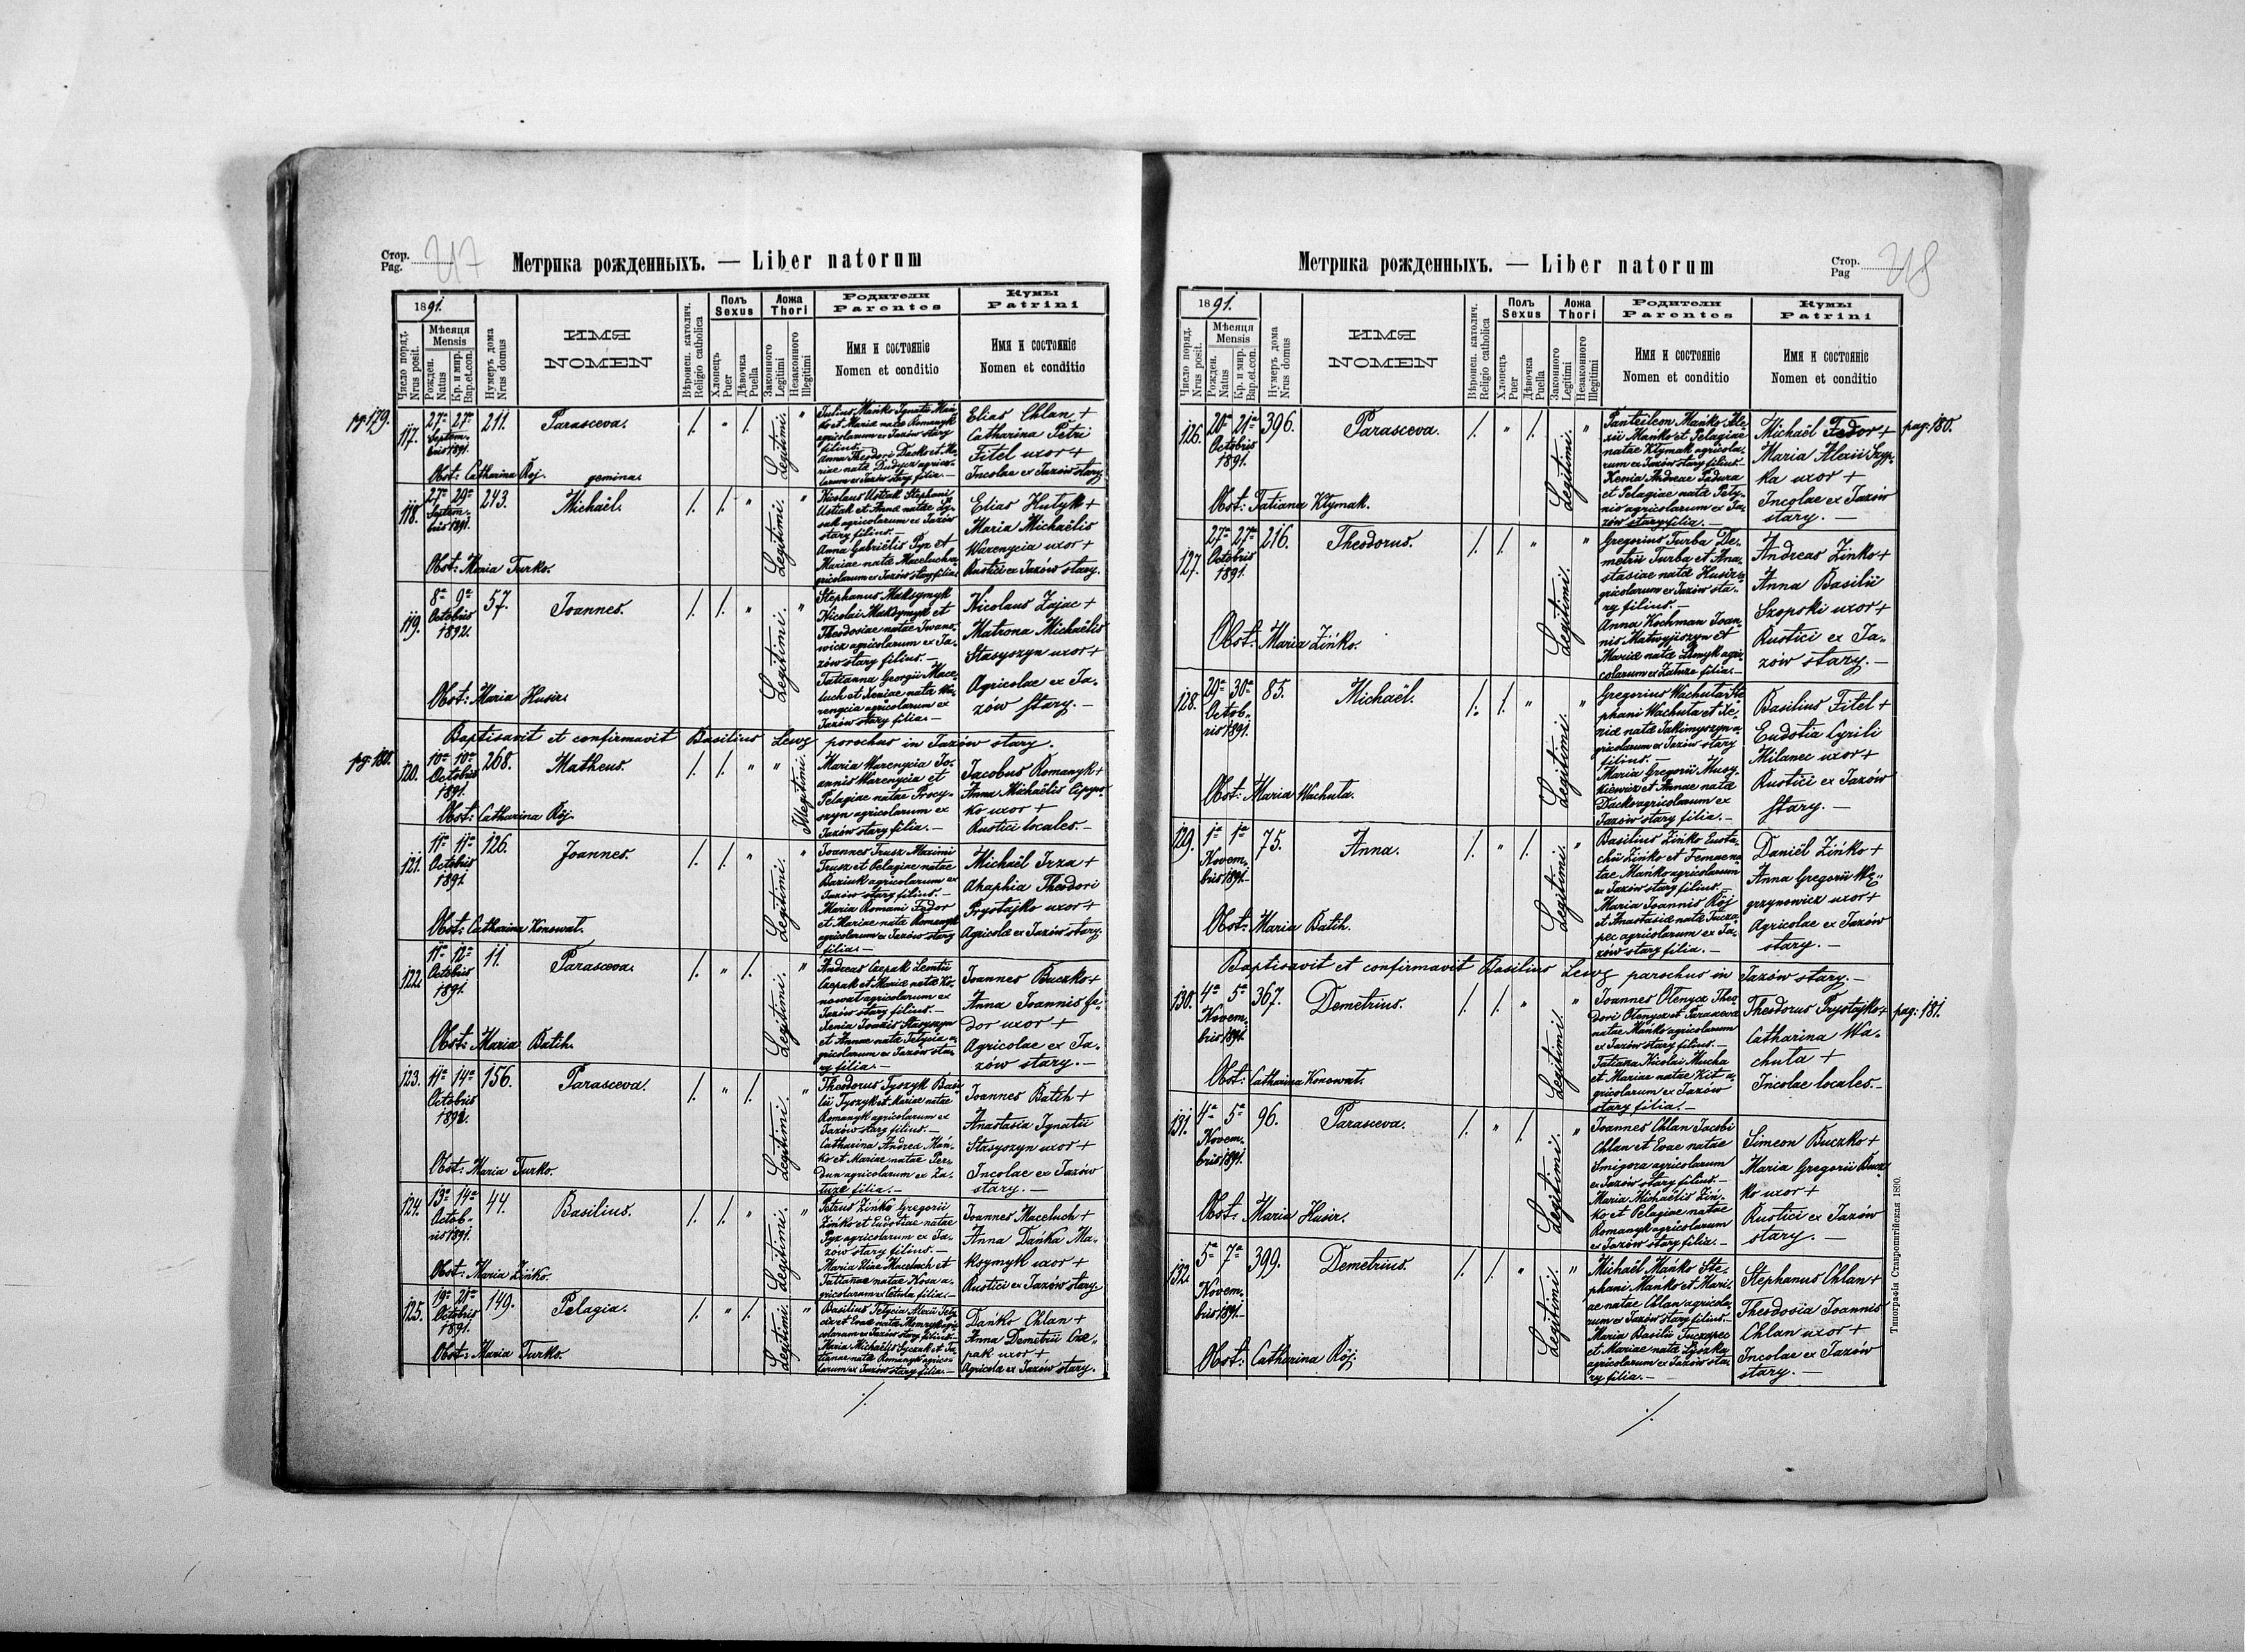 Стор.
Pag. 217
Метрика рожденныхъ. — Liber natorum
1891.
Число поряд.
Nrus posit.
Мѣсяця
Mensis
Рожден.
Natus
Кр. и мир.
Bap.et.con.
Нумеръ дома
Nrus domus
ИМЯ
NOMEN
Вѣроисп. католич.
Religio catholica
Полъ
Sexus
Хлопецъ
Puer
Дѣвочка
Puella
Ложа
Thori
Законного
Legitimi
Незаконного
Illegitimi
Родители
Parentes
Имя и состояніе
Nomen et conditio
Кумы
Patrini
Имя и состояніе
Nomen et conditio
pg 179.
117. 27a 27a 211. Parasceva. /. " /. Legitimi. "
Septem-
bris 1891.
Obst: Catharina Rój. gemina.
Julius Mańko Ignatii Mań-
ko et Mariæ natæ Romanyk
agricolarum ex Jazów stary
filius.—
Anna Theodori Dacko et Ma-
riae natæ Dudycz agrico-
larum ex Jazów stary filia.—
Elias Chlan +
Catharina Petri
Fitel uxor +
Incolae ex Jazów stary.
118. 27a 29a 243. Michaël. /. /. " Legitimi. "
Septem-
bris 1891.
Obst: Maria Turko.
Nicolaus Ustiak Stephani
Ustiak et Annæ natae
sak agricolarum ex Jazów
stary filius.—
Anna Gabriëlis Pyx et
Mariae natæ Maceluch a-
gricolarum ex Jazów stary filia.
Elias Hutyk +
Maria Michaëlis
Warenycia uxor +
Rustici ex Jazów stary.
119. 8a 9a 57. Joannes. /. /. " Legitimi. "
Octobris
1892.
Obst: Maria Husir.
Stephanus Maksymyk
Nicolai Maksymyk et
Theodosiae natae Iwano-
wicz agricolarum ex Ja-
zów stary filius.—
Tattanna Georgii Mace-
luch et Xeniae nata Wa-
renycia agricolarum ex
Jazów stary filia.—
Nicolaus Zajac +
Matrona Michaëlis
Stasyszyn uxor +
Agricolae ex Ja-
zów stary.—
Baptisavit et confirmavit Basilius Lewg parochus in Jazów stary.
pg 180.
120. 10a 10a 268. Matheus. /. /. " " Illegitimi.
Octobris
1891.
Obst: Catharina Rój.
Maria Warenycia Jo-
annis Warenycia et
Pelagiae natae Procy-
szyn agricolarum ex
Jazów stary filia.—
Jacobus Romanyk +
Anna Michaëlis
ko uxor +
Rustici locales.—
121. 11a 11a 126. Joannes. /. /. " Legitimi. "
Octobris
1891.
Obst: Catharina Konowat.
Joannes Trusz Maximi
Trusz et Pelagiae natae
Baziuk agricolarum ex
Jazów stary filius.—
Maria Romani Fedor
et Mariae natæ Romanyk
agricolarum ex Jazów stary
filia.—
Michaël Irza +
Ahaphia Theodori
Prystajko uxor +
Agricolæ ex Jazów stary.
122. 11a 12a 11. Parasceva. /. " /. Legitimi. "
Octobris
1891.
Obst: Maria Batih.
Andreas Czepak Leontii
Czepak et Mariæ natæ Ko-
nowat agricolarum ex
Jazów stary filius.—
Xenia Joannis Stasyszyn
et Annae natæ Telycia a-
gricolarum ex Jazów sta-
ry filia.—
Joannes Buczko +
Anna Joannis Fe-
dor uxor +
Agricolae ex Ja-
zów stary.—
123. 11a 14a 156. Parasceva. /. " /. Legitimi. "
Octobris
1892.
Obst: Maria Turko.
Theodorus Tyszyk Basi-
lii Tyszyk et Mariae natae
Romanyk agricolarum ex
Jazów stary filius.—
Catharina Andreæ Mań-
ko et Mariae natae Per-
dun agricolarum ex Za-
tuze filia.—
Joannes Batih +
Anastasia Ignatii
Stasyszyn uxor +
Incolae ex Jazów
stary.—
124. 13a 14a 44. Basilius. /. /. " Legitimi. "
Octob-
ris 1891.
Obst: Maria Zińko.
Petrus Zińko Gregorii
Zińko et Eudotiae natae
Pyx agricolarum ex Ja-
zów stary filius.—
Maria Eliæ Maceluch et
Tattanae natae Kosa a-
gricolarum ex Cetula filia.—
Joannes Maceluch +
Anna Dańka Ma-
ksymyk uxor +
Rustici ex Jazów stary.
125. 19a 21a 149. Pelagia. /. " /. Legitimi. "
Octobris
1891.
Obst: Maria Turko.
Basilius Telycia Alexii Tely-
cia et Evæ natæ agri-
colarum ex Jazów stary filius.—
Maria Michaëlis et Ta-
tianae natæ Romanyk agrico-
larum ex Jazów stary filia.—
Dańko Chlan +
Anna Demetrii Cze-
pak uxor +
Agricolæ ex Jazów stary.
/.
Метрика рожденныхъ. — Liber natorum
Стор.
Pag 218
1891.
Число поряд.
Nrus posit.
Мѣсяця
Mensis
Рожден.
Natus
Кр. и мир.
Bap.et.con.
Нумеръ дома
Nrus domus
ИМЯ
NOMEN
Вѣроисп. католич.
Religio catholica
Полъ
Sexus
Хлопецъ
Puer
Дѣвочка
Puella
Ложа
Thori
Законного
Legitimi
Незаконного
Illegitimi
Родители
Parentes
Имя и состояніе
Nomen et conditio
Кумы
Patrini
Имя и состояніе
Nomen et conditio
126. 20a 21a 396. Parasceva. /. " /. Legitimi. "
Octobris
1891.
Obst: Tatiana Kłymak.
Panteileon Mańko Ale-
xii Mańko et Pelagiae
natae Kłymak agricola-
rum ex Jazów stary filius.—
Xenia Andreae Padura
et Pelagiae natæ Pety-
nio agricolarum ex Ja-
zów stary filia.—
Michaël Fedor +
Maria Alexii Szyp-
ka uxor +
Incolae ex Jazów
stary.—
pag: 180.
127. 27a 27a 216. Theodorus. /. /. " Legitimi. "
Octobris
1891.
Obst: Maria Zińko.
Gregorius Turba De-
metrii Turba et Ana-
stasiae natæ Husir a-
gricolarum ex Jazów sta-
ry filius.—
Anna Kochman Joan-
nis Matwyjiszyn et
Mariæ natæ Dmyk agri-
colarum ex Zatuze filia.—
Andreas Zinko +
Anna Basilii
Szopski uxor +
Rustici ex Ja-
zów stary.—
128. 29a 30a 85. Michaël. /. /. " Legitimi. "
Octob-
ris 1891.
Obst: Maria Wachuta.
Gregorius Wachuta Ste-
phani Wachuta et Xe-
niæ natæ Jakimyszyn a-
gricolarum ex Jazów stary
filius.—
Maria Gregorii Musy-
kiewicz et Annae natæ
Dacko agricolarum ex
Jazów stary filia.—
Basilius Fitel +
Eudotia Cyrili
Milanec uxor +
Rustici ex Jazów
stary.—
129. 1a 1a 75. Anna. /. " /. Legitimi. "
Novem-
bris 1891.
Obst: Maria Batih.
Basilius Zińko Eusta-
chii Zińko et na-
tae Mańko agricolarum
ex Jazów stary filius.—
Maria Joannis Rój
et Anastasiæ natæ Tucza-
pec agricolarum ex Ja-
zów stary filia.—
Daniël Zińko +
Anna Gregorii Wę-
grzynowicz uxor +
Agricolae ex Jazów
stary.—
Baptisavit et confirmavit Basilius Lewg parochus in Jazów stary.—
130. 4a 5a 367. Demetrius. /. /. " Legitimi. "
Novem-
bris 1891.
Obst: Catharina Konowat.
Joannes Olenycz Theo-
dori Olenycz et Parascevæ
natae Mańko agricolarum
ex Jazów stary filius.—
Tatiana Nicolai Mucha
et Mariae natae Kit a-
gricolarum ex Jazów
stary filia.—
Theodorus Prystajko +
Catharina Wa-
chuta +
Incolae locales.—
pag: 181.
131. 4a 5a 96. Parasceva. /. " /. Legitimi. "
Novem-
bris 1891.
Obst: Maria Husir.
Joannes Chlan Jacobi
Chlan et Evae natae
Smigora agricolarum
ex Jazów stary filius.—
Maria Michaëlis Ziń-
ko et Pelagiae natae
Romanyk agricolarum
ex Jazów stary filia.—
Simeon Buczko +
Maria Gregorii Bucz-
ko uxor +
Rustici ex Jazów
stary.—
132. 5a 7a 399. Demetrius. /. /. " Legitimi. "
Novem-
bris 1891.
Obst: Catharina Rój.
Michaël Mańko Ste-
phani Mańko et Mari-
ae natae Chlan agricola-
rum ex Jazów stary filius.—
Maria Basilii Tuczapec
et Mariae natæ
agricolarum ex Jazów sta-
ry filia.—
Stephanus Chlan +
Theodosia Joannis
Chlan uxor +
Incolae ex Jazów
stary.—
Типографія Ставропигійская 1890.
/.